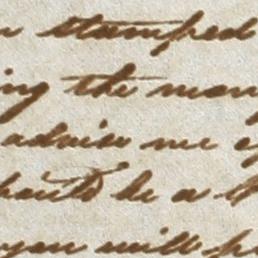 stamped
ing the man
advise me of
should be a
you will